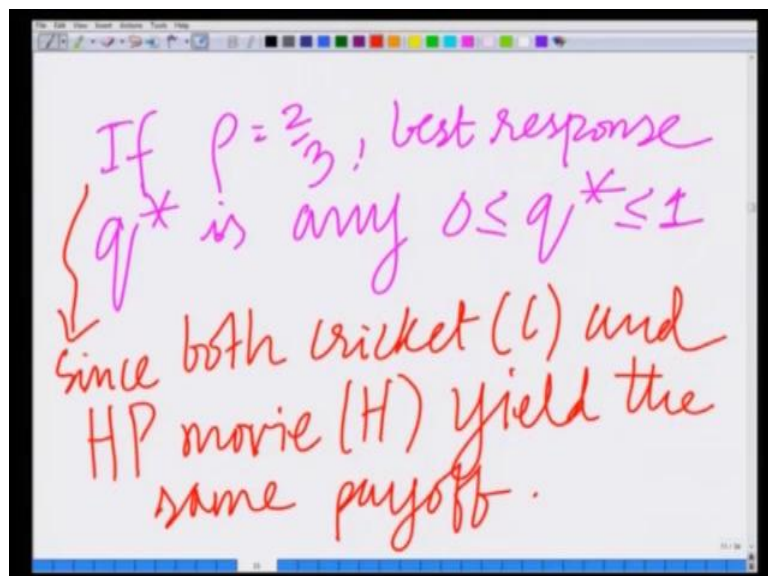 File Edit View Insert Actions Tools Help
If p = 2/3, best response
q* is any 0 ≤ q* ≤ 1
since both cricket (C) and
HP movie (H) yield the
same payoff.